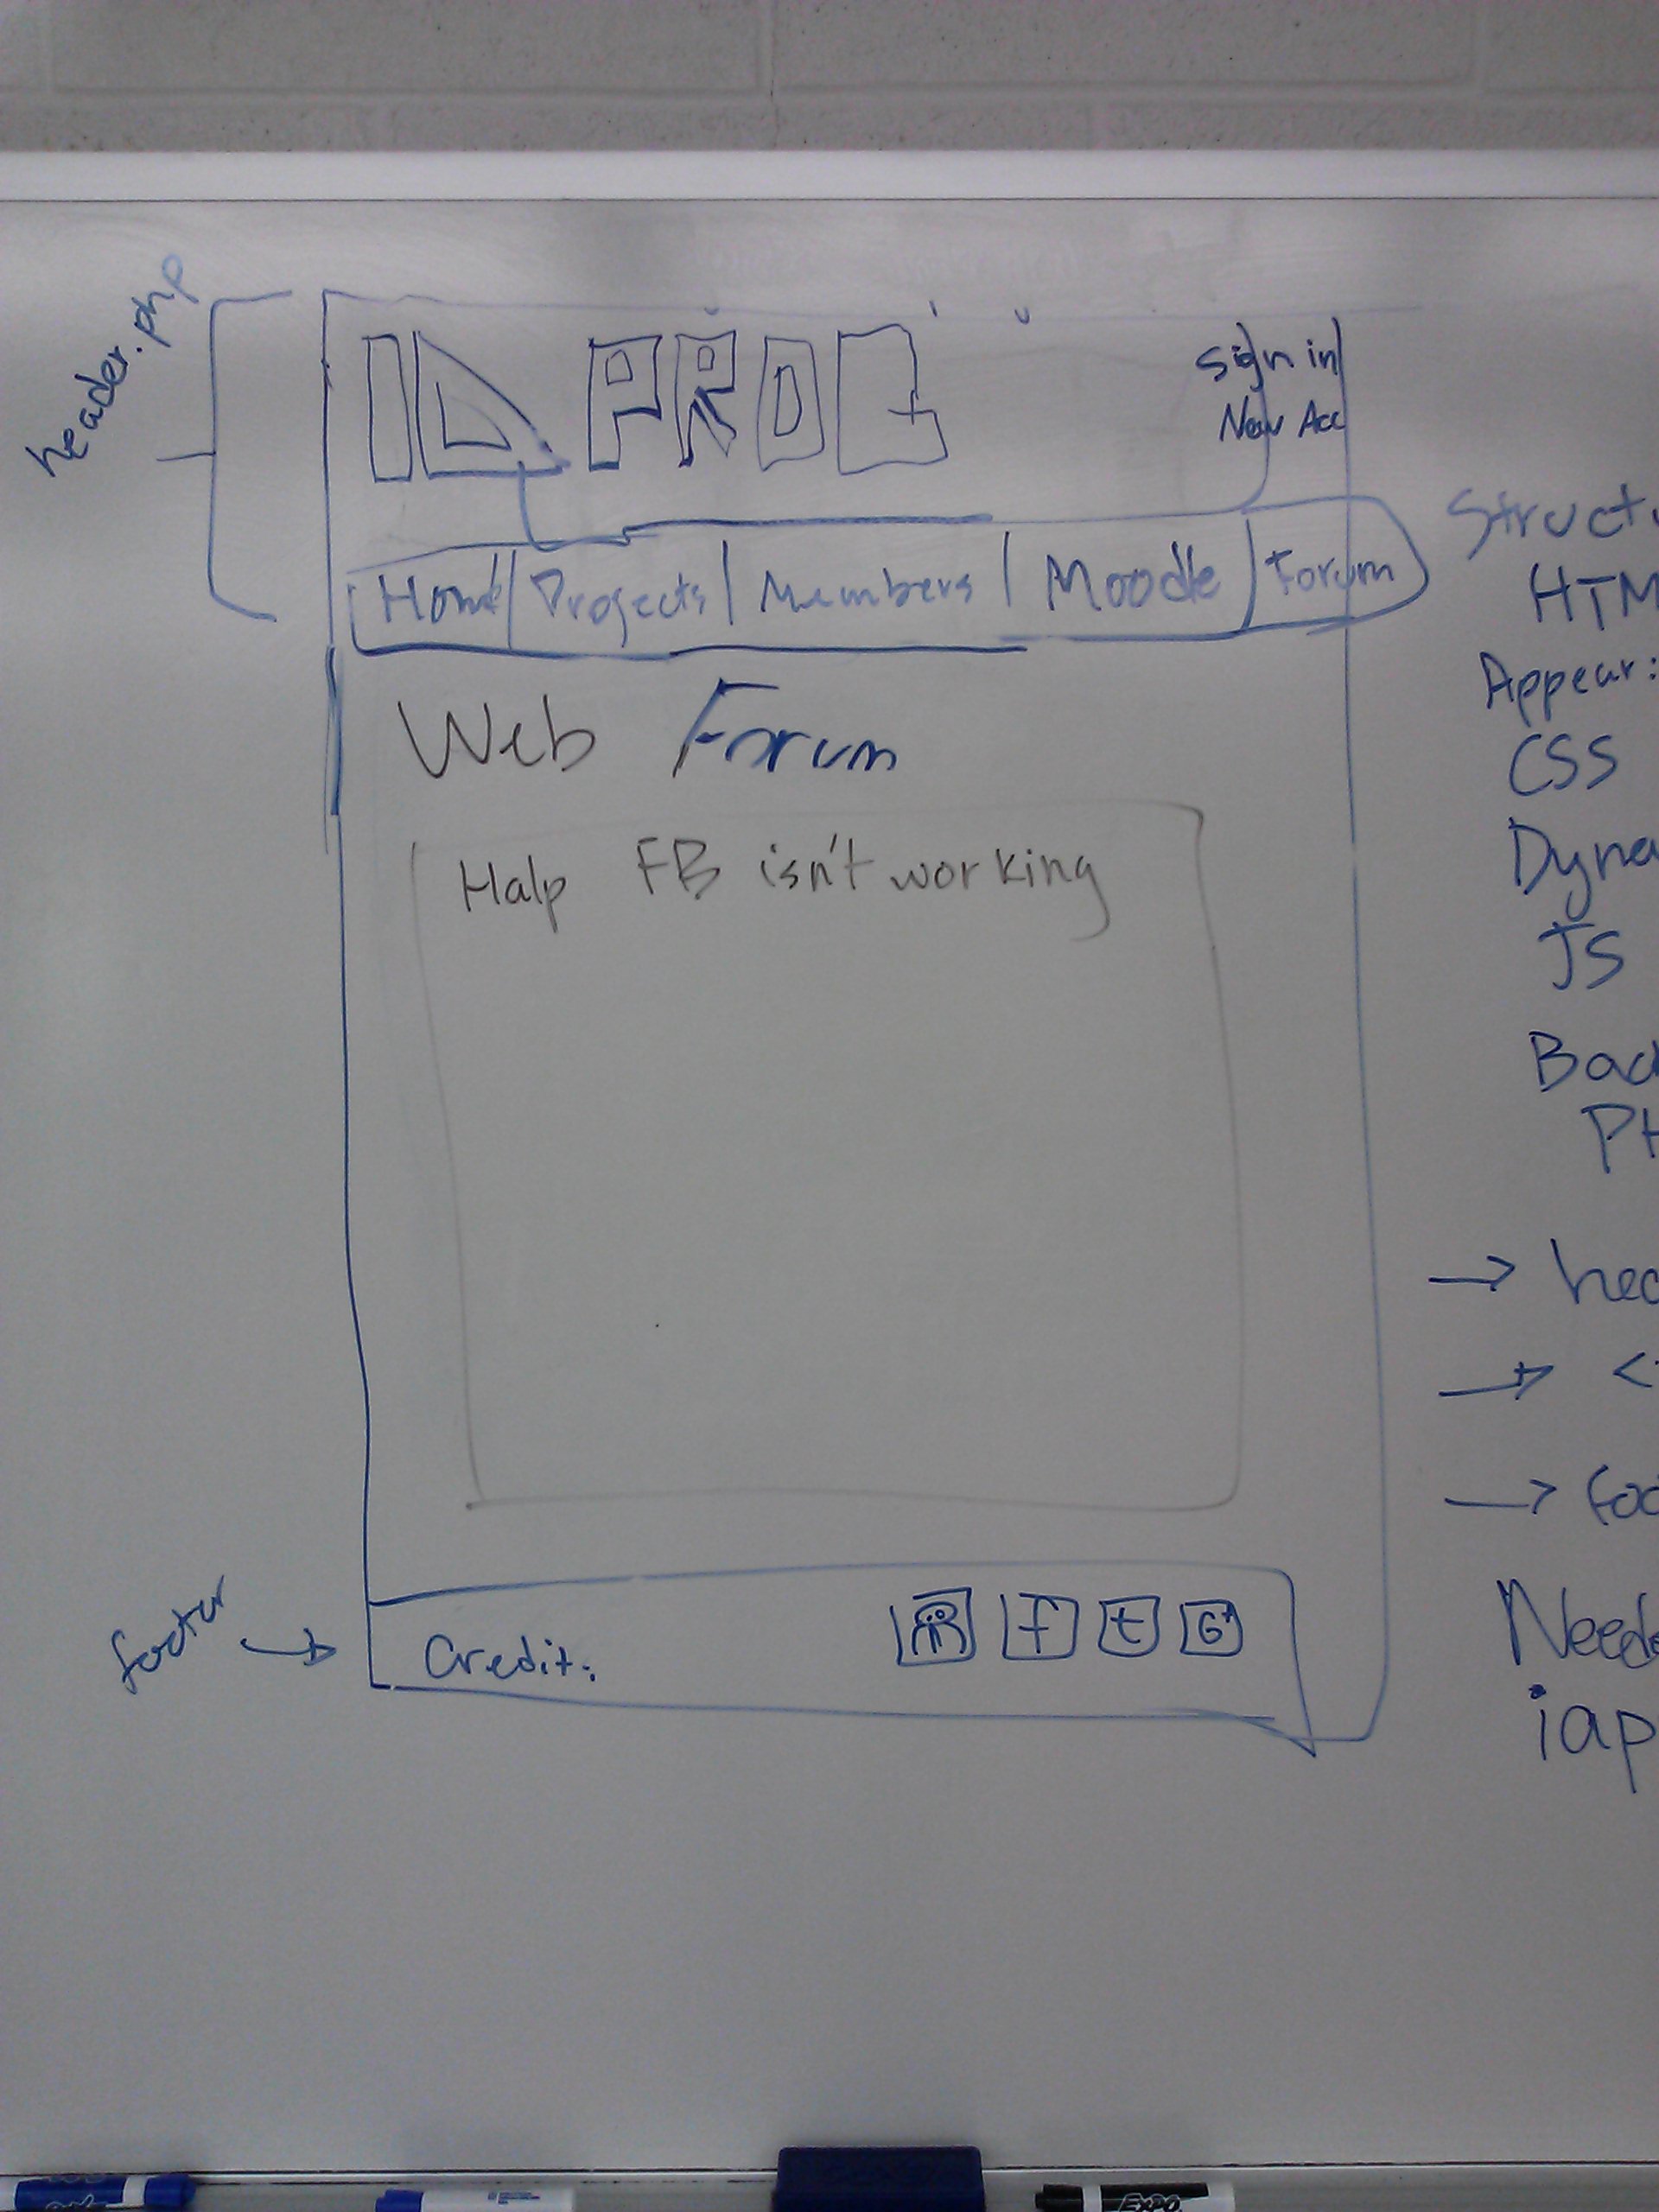 header.php
ID PROG
Sign in
New Acc
Home Projects Members Moodle Forum
Web Forum
Halp FB isn't working
footer
Credit:
f t G+
Struct
HTM
Appear:
CSS
Dyna
JS
Bac
PH
→ hea
→ <
→ foo
Neede
iap
EXPO